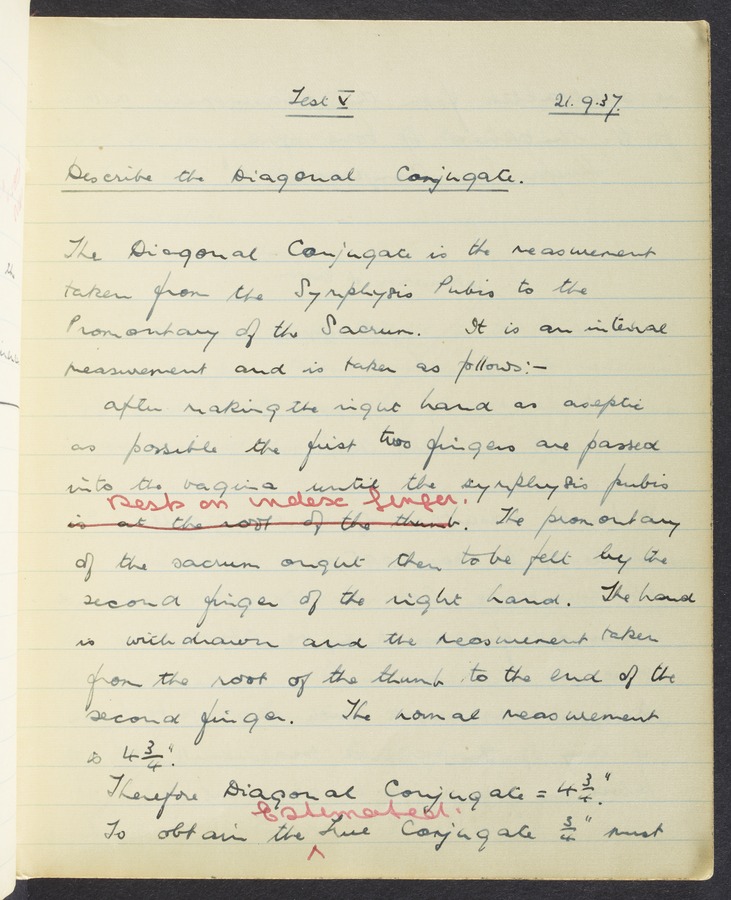 Test V 21.9.37.
Describe the Diagonal Conjugate.
The Diagonal Conjugate is the measurement
taken from the Symphysis Pubis to the
Promontary of the Sacrum. It is an internal
measurement and is taken as follows:-
after making the right hand as aseptic
as possible the first two fingers are passed
into the vagina until the symphysis pubis
rests on index finger.
is at the root of the thumb. The promontary
of the sacrum ought then to be felt by the
second finger of the right hand. The hand
is withdrawn and the measurement taken
from the root of the thumb to the end of the
second finger. The normal measurement
is 4 3/4".
Therefore Diagonal Conjugate = 4 3/4".
Estimated.
To obtain the ^ True Conjugate 3/4" must